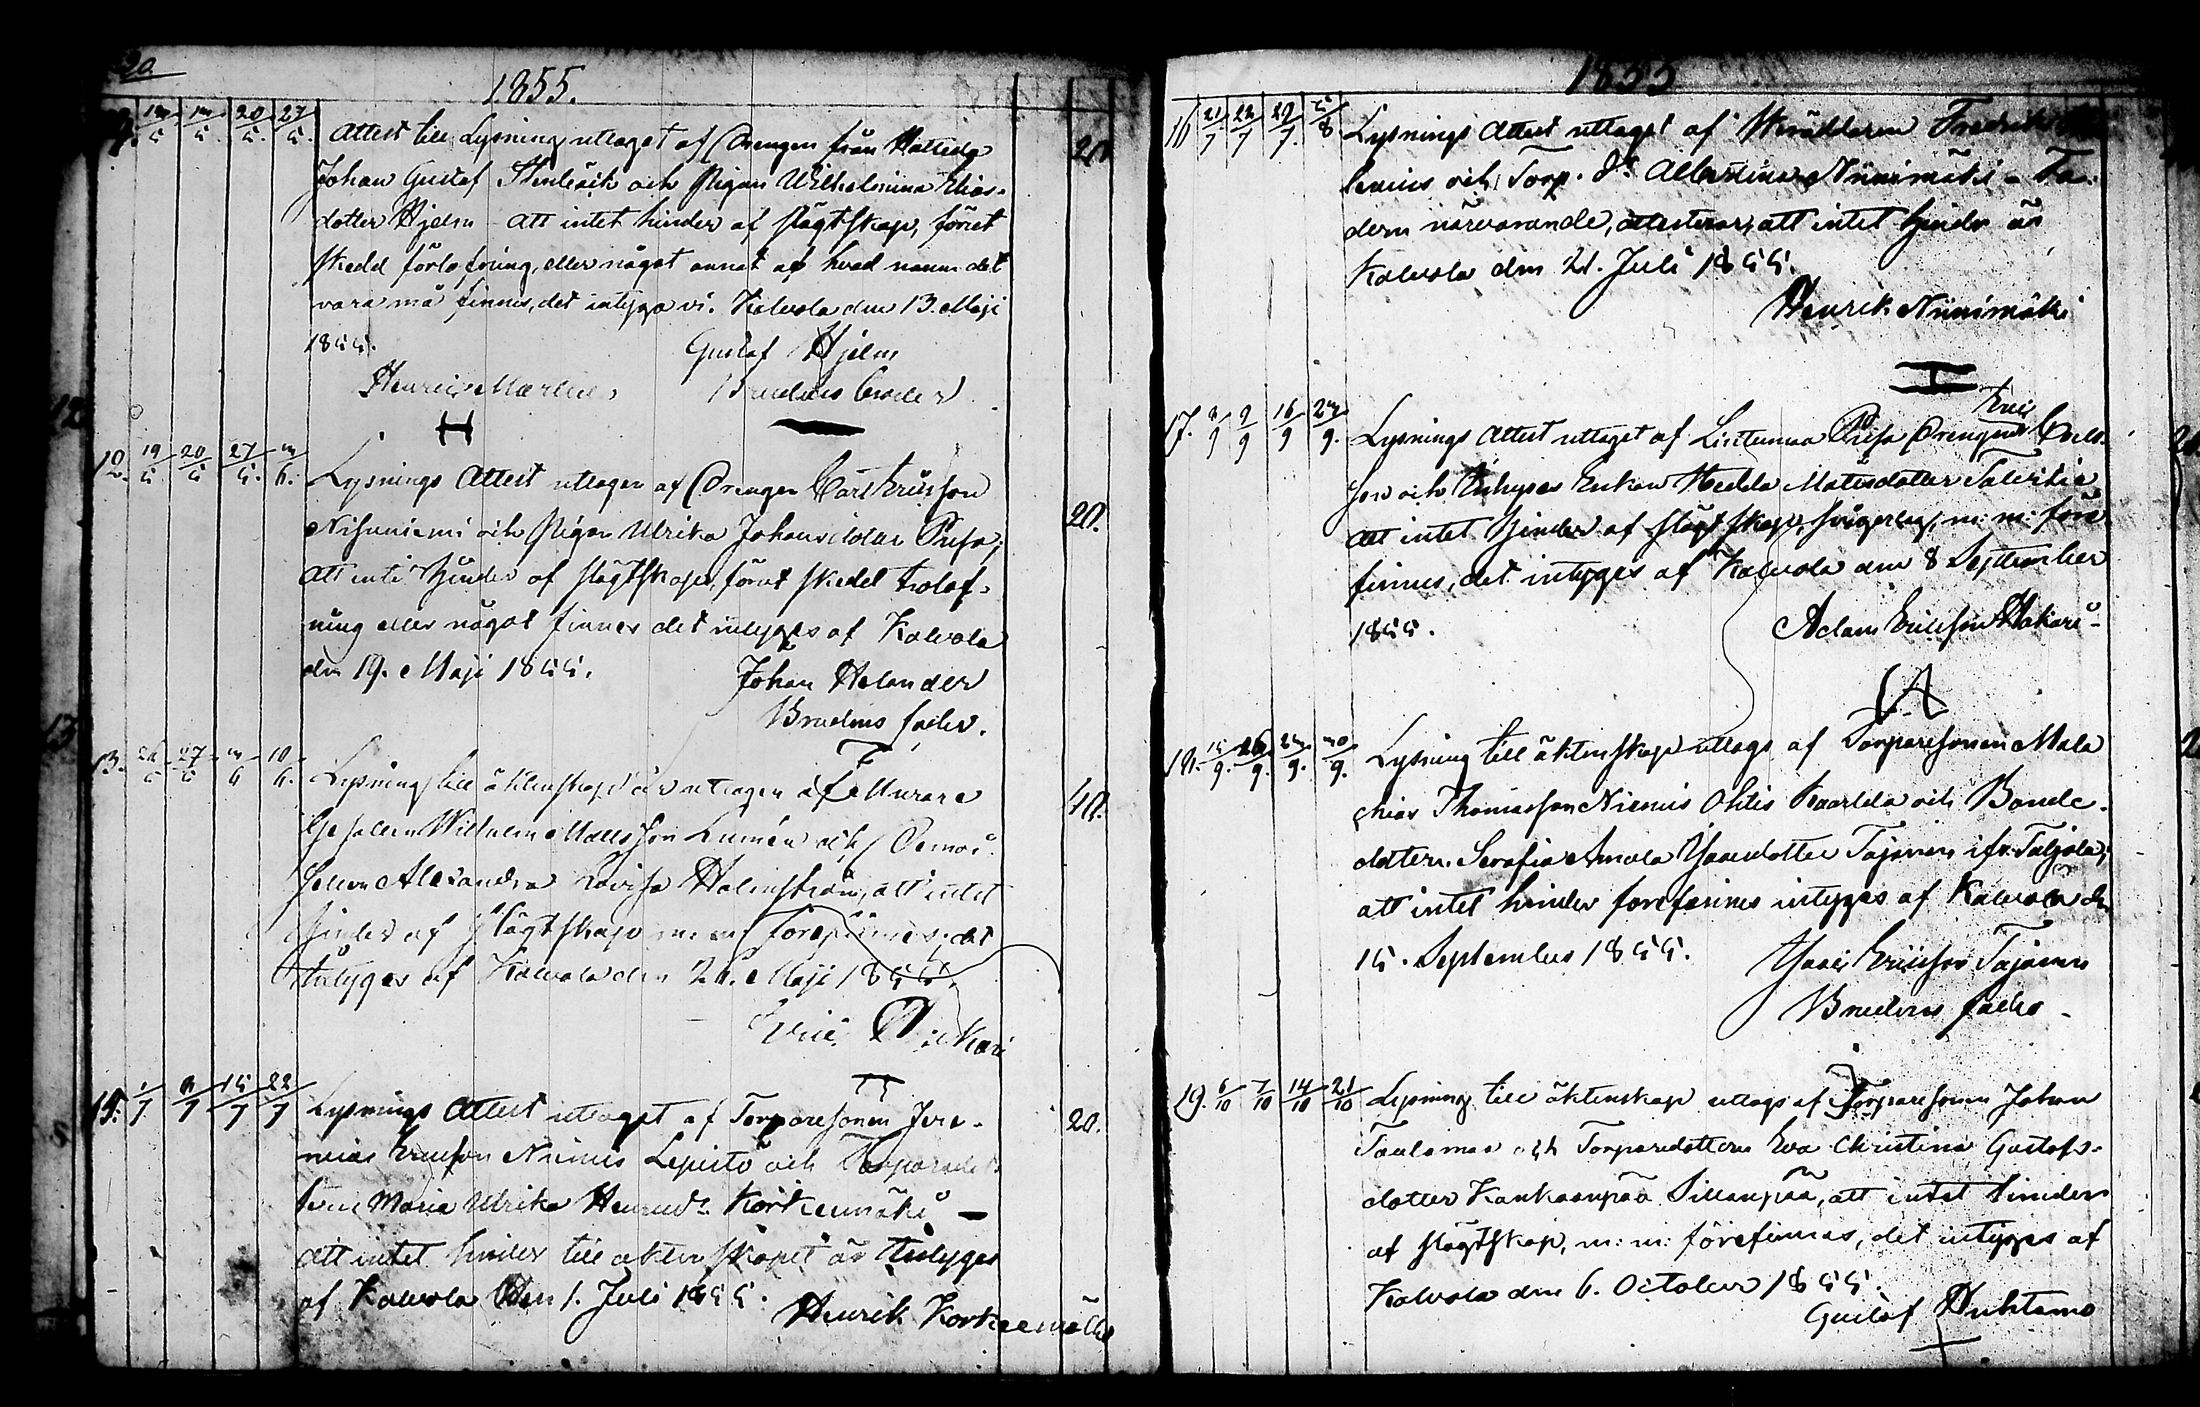 20.
1855.
13/5. 13/5. 20/5. 27/5.
Attest till Lysning uttaget af Drengen från Hattula
Johan Gustaf och Pigan Wilhelmina Elias-
dotter Hjelm - att intet hinder af slägtskap, förut
skedd förlofning, eller något annat af hvad namn det
vara må finnes, det intyga vi. Kalvola den 13. Maji
1855.
Gustaf Hjelm
Brudens broder
20
12. 19/5. 20/5. 27/5. 3/6.
Lysnings Attest uttagen af Drengen Carl Ericsson
Nisuniemi och Pigan Ulrika Johansdotter
att intet hinder af slägtskap, förut skedd trolof-
ning eller något finnes det intygas af Kalvola
den 19. Maji 1855.
Johan Helander
Brudens fader.
20.
13. 26/5 27/5 3/6 10/6.
Lysning till äktenskap är uttagen af Murare
Gesellen Wilhelm Mattsson Lumén och Demoi-
sellen Alexandra Lovisa Holmström, att intet
hinder af Slägtskap m. m. förefinnes, det
intygas af Kalvola den 26. Maji 1855.
Eric
40.
15. 1/7 8/7 15/7 22/7
Lysnings Attest uttaget af Torparesonen Jere-
mias Ericsson Niemis Lepistö och Torparedot-
tern Maria Ulrika Henricsdr Korkeemäki -
att intet hinder till äktenskapet är intygas
af Kalvola den 1. Juli 1855.
Henrik Korkeemäki
20.
1855
16 21/7 22/7 29/7. 5/8
Lysnings Attest uttaget af Skräddaren Fredrik
lenius och Torp. dr. Albertina Niinimäki - Fa-
dern närvarande, attesterar, att intet hinder är
Kalvola den 21. Juli 1855.
Henrik Niinimäki
17. 8/9 9/9 16/9 23/9.
Eric
Lysnings Attest uttaget af Lintumaa Drengen Carls-
son och Enkan Hedda Matsdotter
att intet hinder af slägtskap, svågerlag, m: m: före
finnes, det intygas af Kalvola den 8 September
1855.
Adam Ericsson Hakari
18. 15/9. 16/9. 23/9. 30/9.
Lysning till äktenskap uttogs af Torparesonen Mala
chias Thomasson Niemis Ohtis Kaarlela och Bonde-
dottern Serafia Amala Isaacsdotter Tajanen ifr. Taljala,
att intet hinder förefinnes intygas af Kalvola den
15. September 1855.
Isaac Ericsson Tajanen
Brudens fader
19. 6/10 7/10 14/10 21/10
Lysning till äktenskap uttogs af Torparesonen Johan
och Torparedottern Eva Christina Gustafs-
dotter Kankaanpää Sillanpää, att intet hinder
af slägtskap, m: m: förefinnas, det intygas af
Kalvola den 6. October 1855.
Gustaf Huhtamo